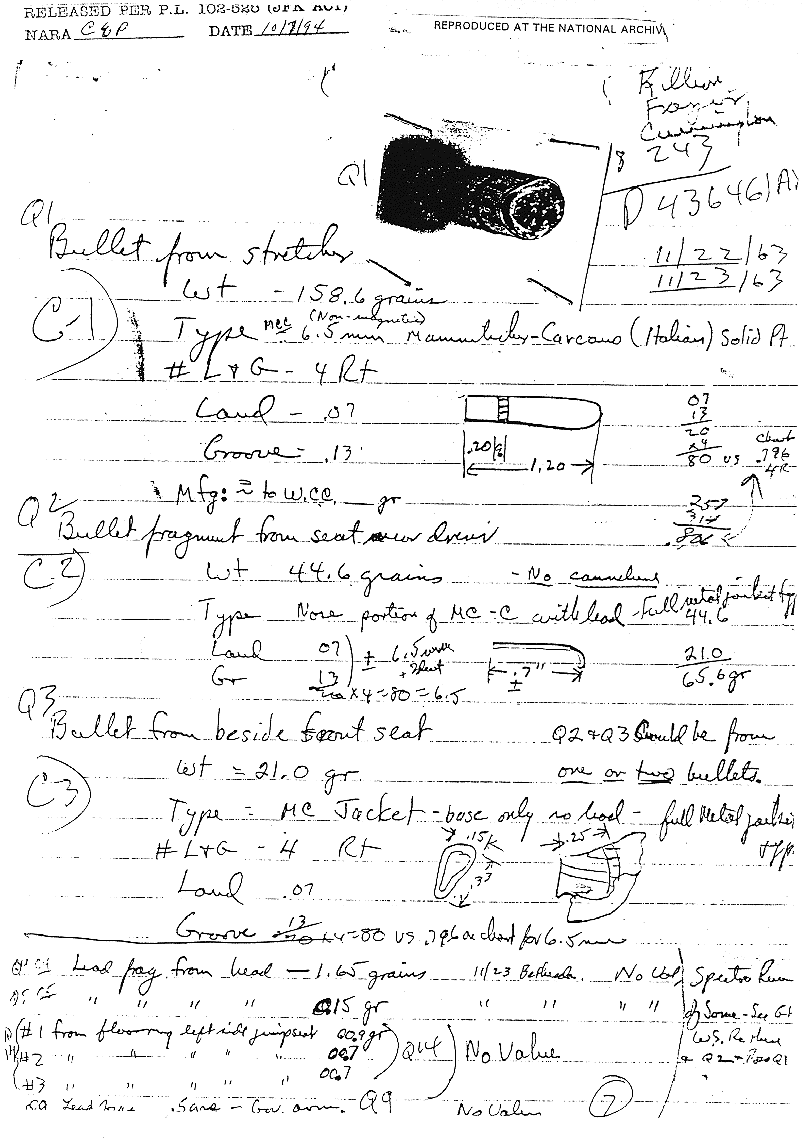 RELEASED PER P.L. 102-526 (JFK ACT)
NARA DATE 10/7/94
REPRODUCED AT THE NATIONAL ARCHIV
Killion
Frazier
Cunningham
243
Q1
D 43646 (A)
11/22/63
11/23/63
Q1
Bullet from stretcher
C-1
Wt - 158.6 grains
(Non-magnetic)
Type 6.5 mm Mannlicher-Carcano (Italian) Solid Pt
# L & G - 4 Rt
Land - .07
Groove - .13
.20
1.20
07
13
20
x4
80 vs
chart
.796
4R
Mfg: ≈ to W.C.C. gr
257
.806
Q2
Bullet fragment from seat near driver
C-2
Wt 44.6 grains - No cannelure
Type Nose portion of MC-C with lead - Full metal jacket typ
Land 07
Gr 13
x4=80=6.5
± 6.5 mm
.7"
±
44.6
21.0
65.6 gr
Q3
Bullet from beside front seat
Q2 & Q3 Could be from
one or two bullets.
C-3
Wt = 21.0 gr.
Type = MC Jacket - base only no lead - full Metal jacket
typ
# L & G - 4 Rt
.15
.33
.25
Land .07
Groove 13 x4=80 vs .796 on chart for 6.5 mm
Lead frag from head - 1.65 grains 11/23 Bethesda. No Val,
" " " " .15 gr " " " "
Spectro Run
of Some - See
#1 from flooring left side jumpseat 00.9 gr
#2 " " " " 00.7
#3 " " " " 00.7
Q14
No Value
Q9
No Value
7